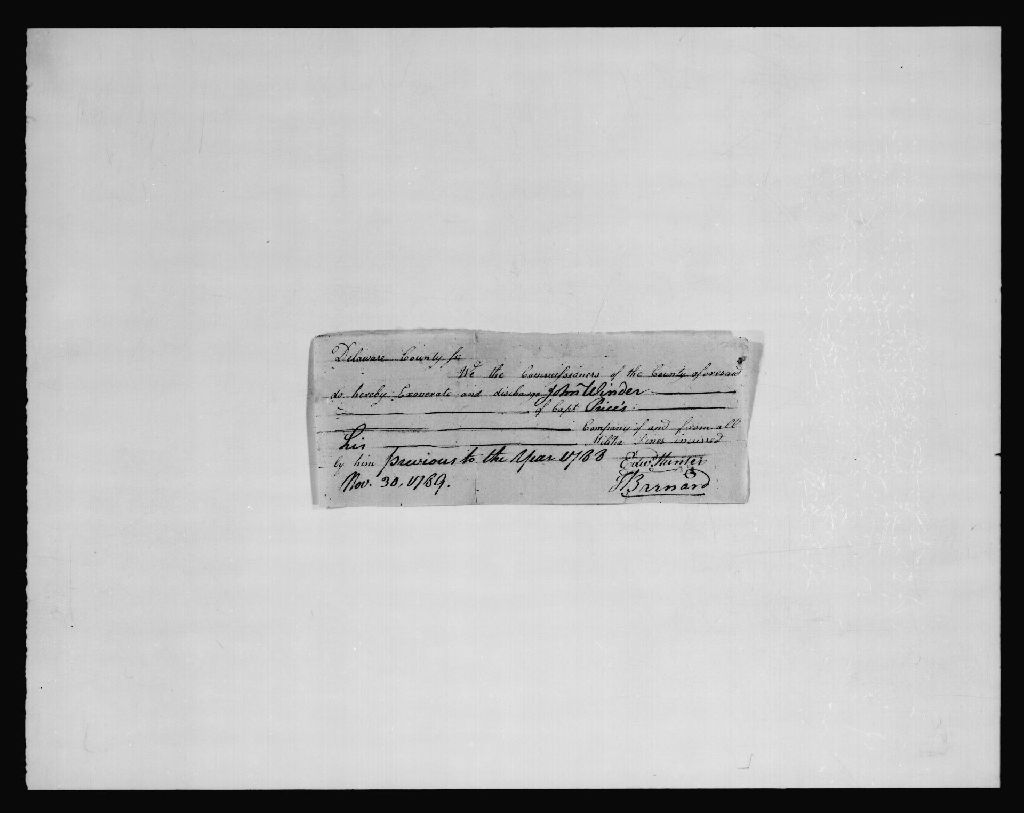 Delaware County ss
We the Commissioners of the County aforesaid
do hereby Exonerate and discharge John Winder
of Capt Price's
Company of and from all
his Militia Fines incured
by him previous to the Year 1788
Nov. 30. 1789. Edwd Hunter
Barnard